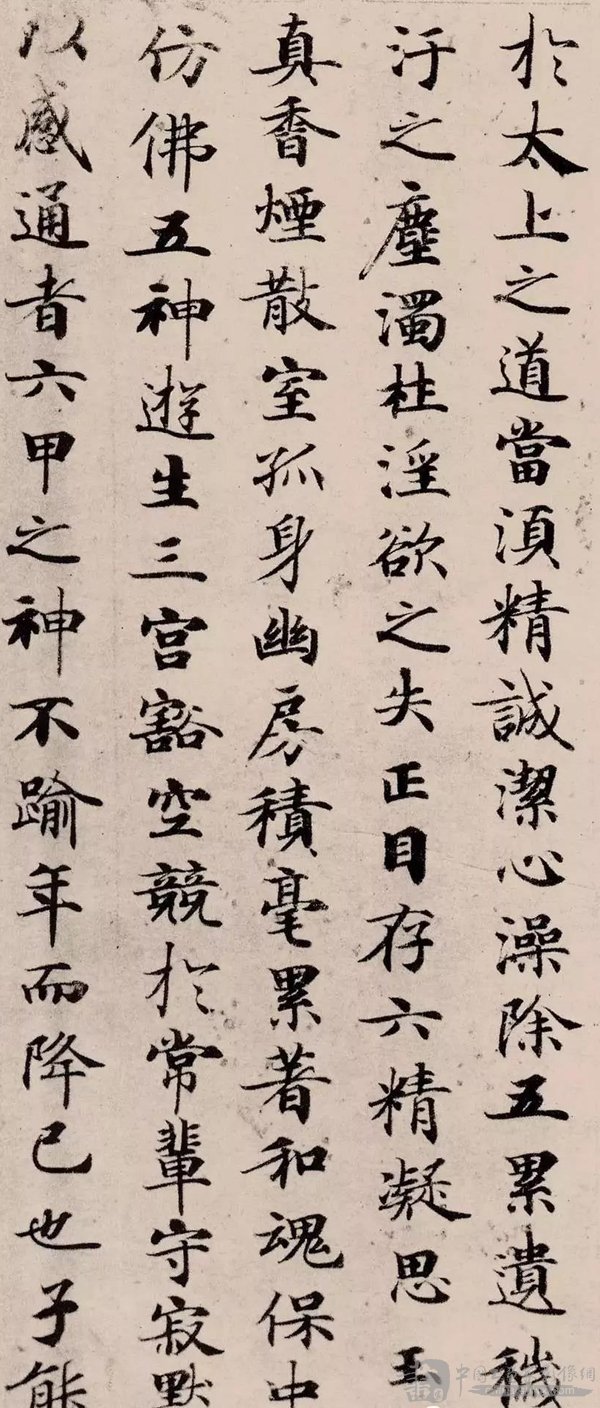 於太上之道當湏精誠潔心澡除五累遺穢
汙之塵濁杜淫欲之失正目存六精凝思玉
真香煙散室孤身幽房積毫累著和魂保中
仿佛五神遊生三宮豁空競於常輩守寂默
以感通者六甲之神不踰年而降己也子能